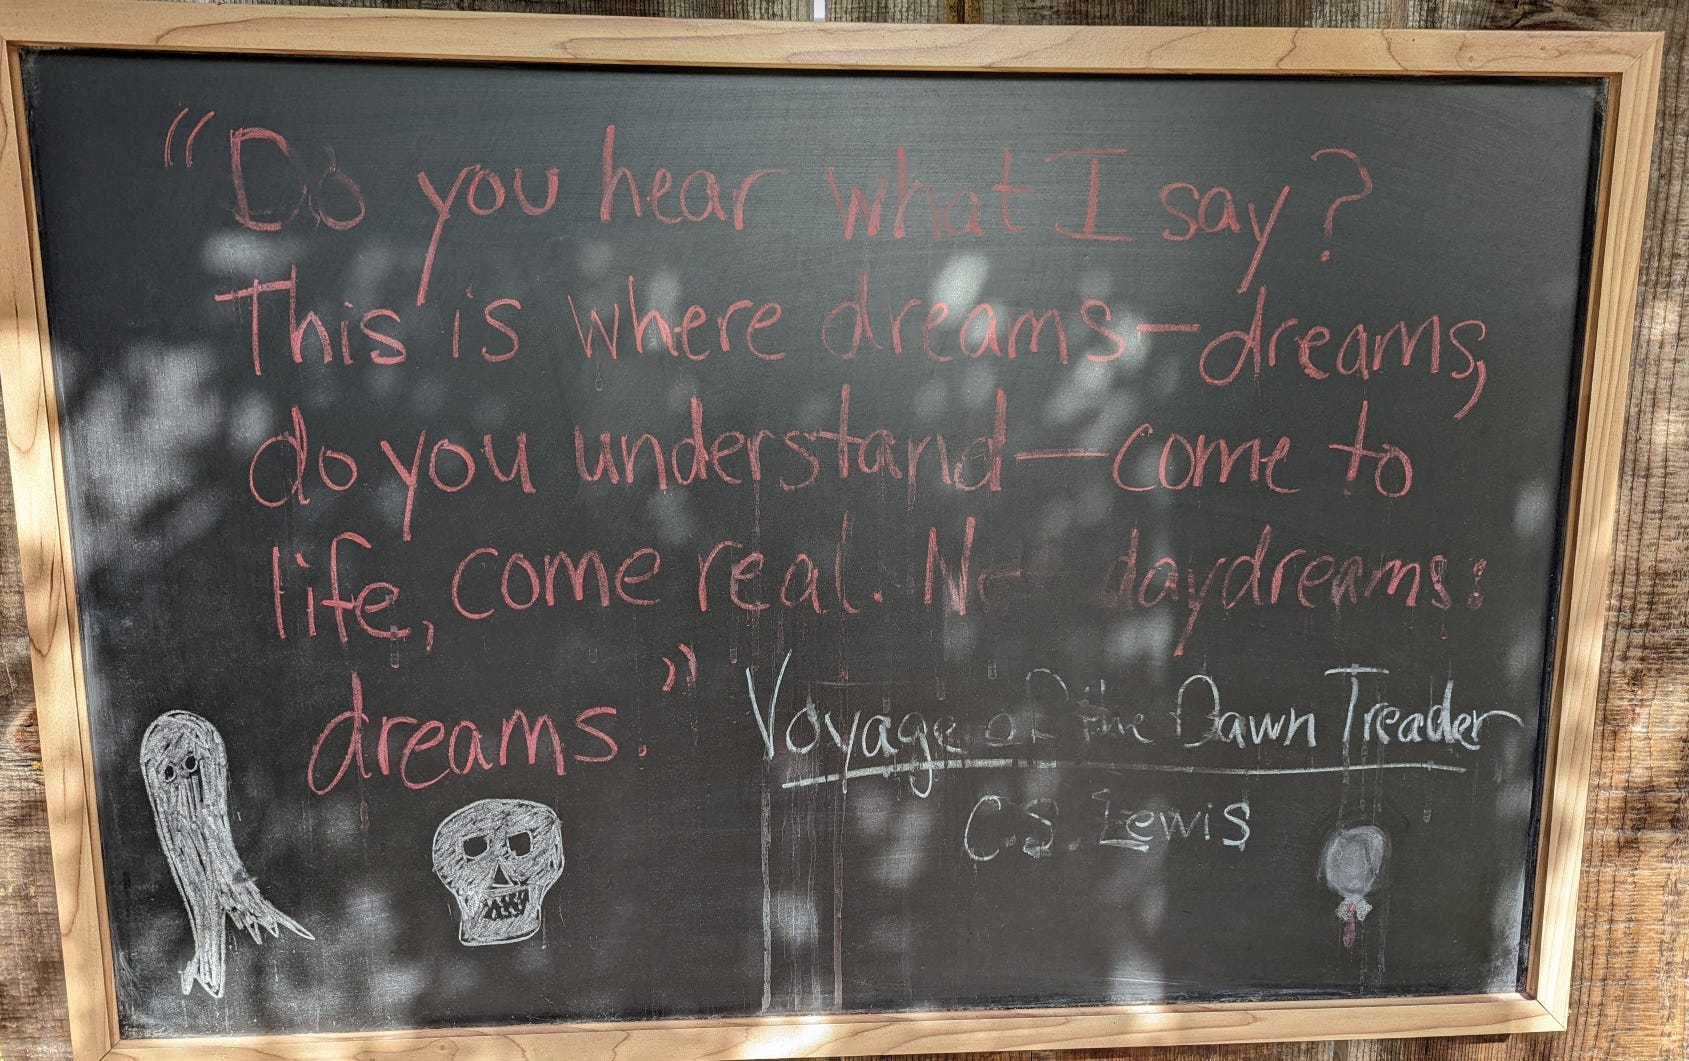 "Do you hear what I say?
This is where dreams—dreams,
do you understand—come to
life, come real. Not daydreams:
dreams."
Voyage of the Dawn Treader
C.S. Lewis